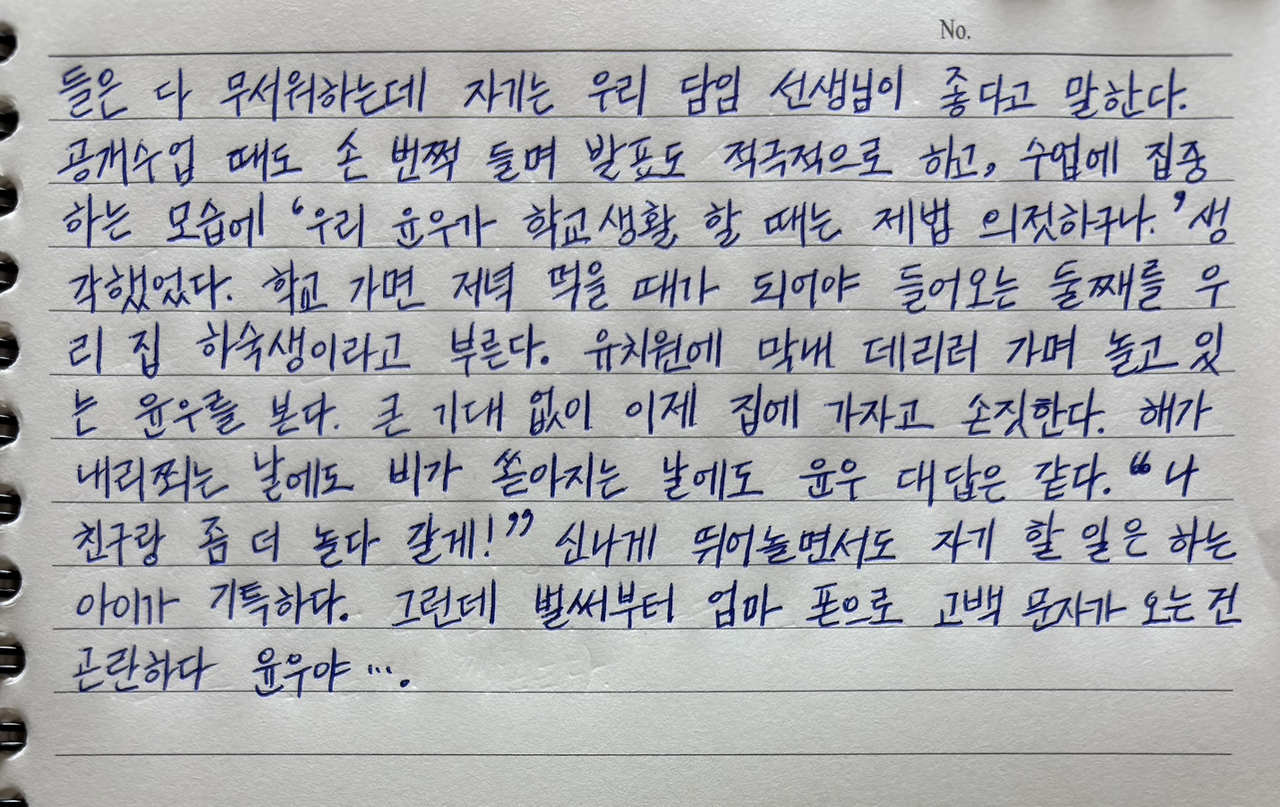 No.
들은 다 무서워하는데 자기는 우리 담임 선생님이 좋다고 말한다.
공개수업 때도 손 번쩍 들며 발표도 적극적으로 하고, 수업에 집중
하는 모습에 ‘우리 윤우가 학교생활 할 때는 제법 의젓하구나.’ 생
각했었다. 학교 가면 저녁 먹을 때가 되어야 들어오는 둘째를 우
리 집 하숙생이라고 부른다. 유치원에 막내 데리러 가며 놀고 있
는 윤우를 본다. 큰 기대 없이 이제 집에 가자고 손짓한다. 해가
내리쬐는 날에도 비가 쏟아지는 날에도 윤우 대답은 같다. “나
친구랑 좀 더 놀다 갈게!” 신나게 뛰어놀면서도 자기 할 일은 하는
아이가 기특하다. 그런데 벌써부터 엄마 폰으로 고백 문자가 오는 건
곤란하다 윤우야 ….